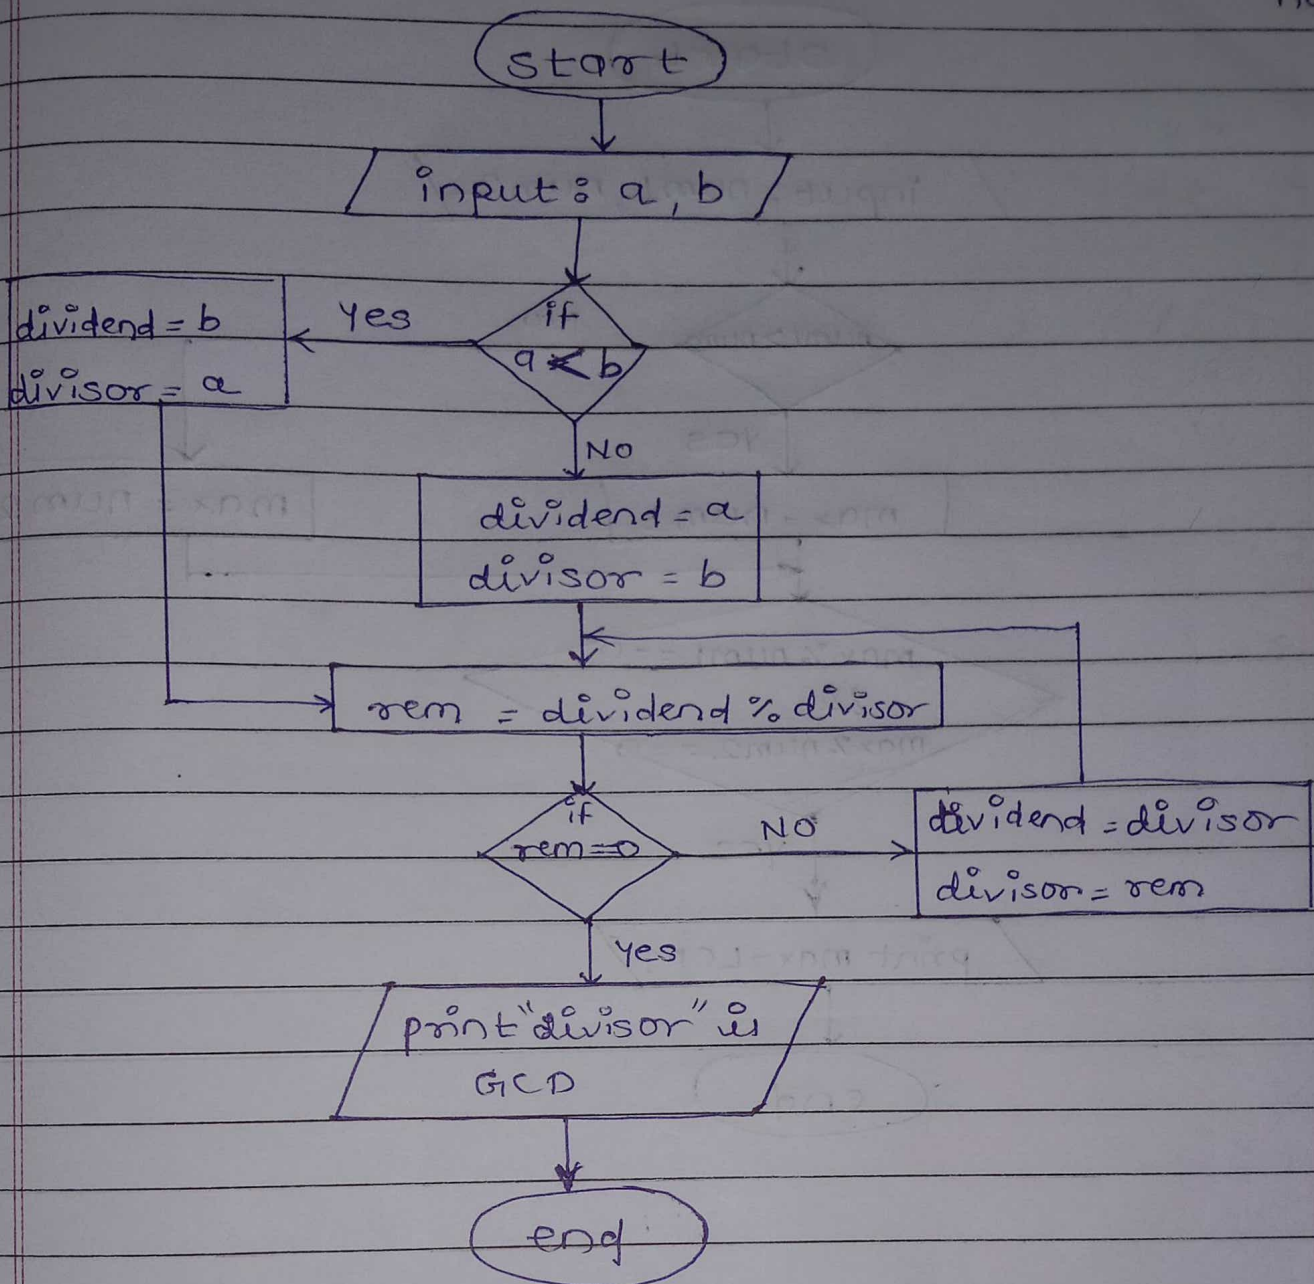 start
input : a, b
if
a < b
Yes
dividend = b
divisor = a
NO
dividend = a
divisor = b
rem = dividend % divisor
if
rem==0
NO
dividend = divisor
divisor = rem
yes
print "divisor" is
GCD
end